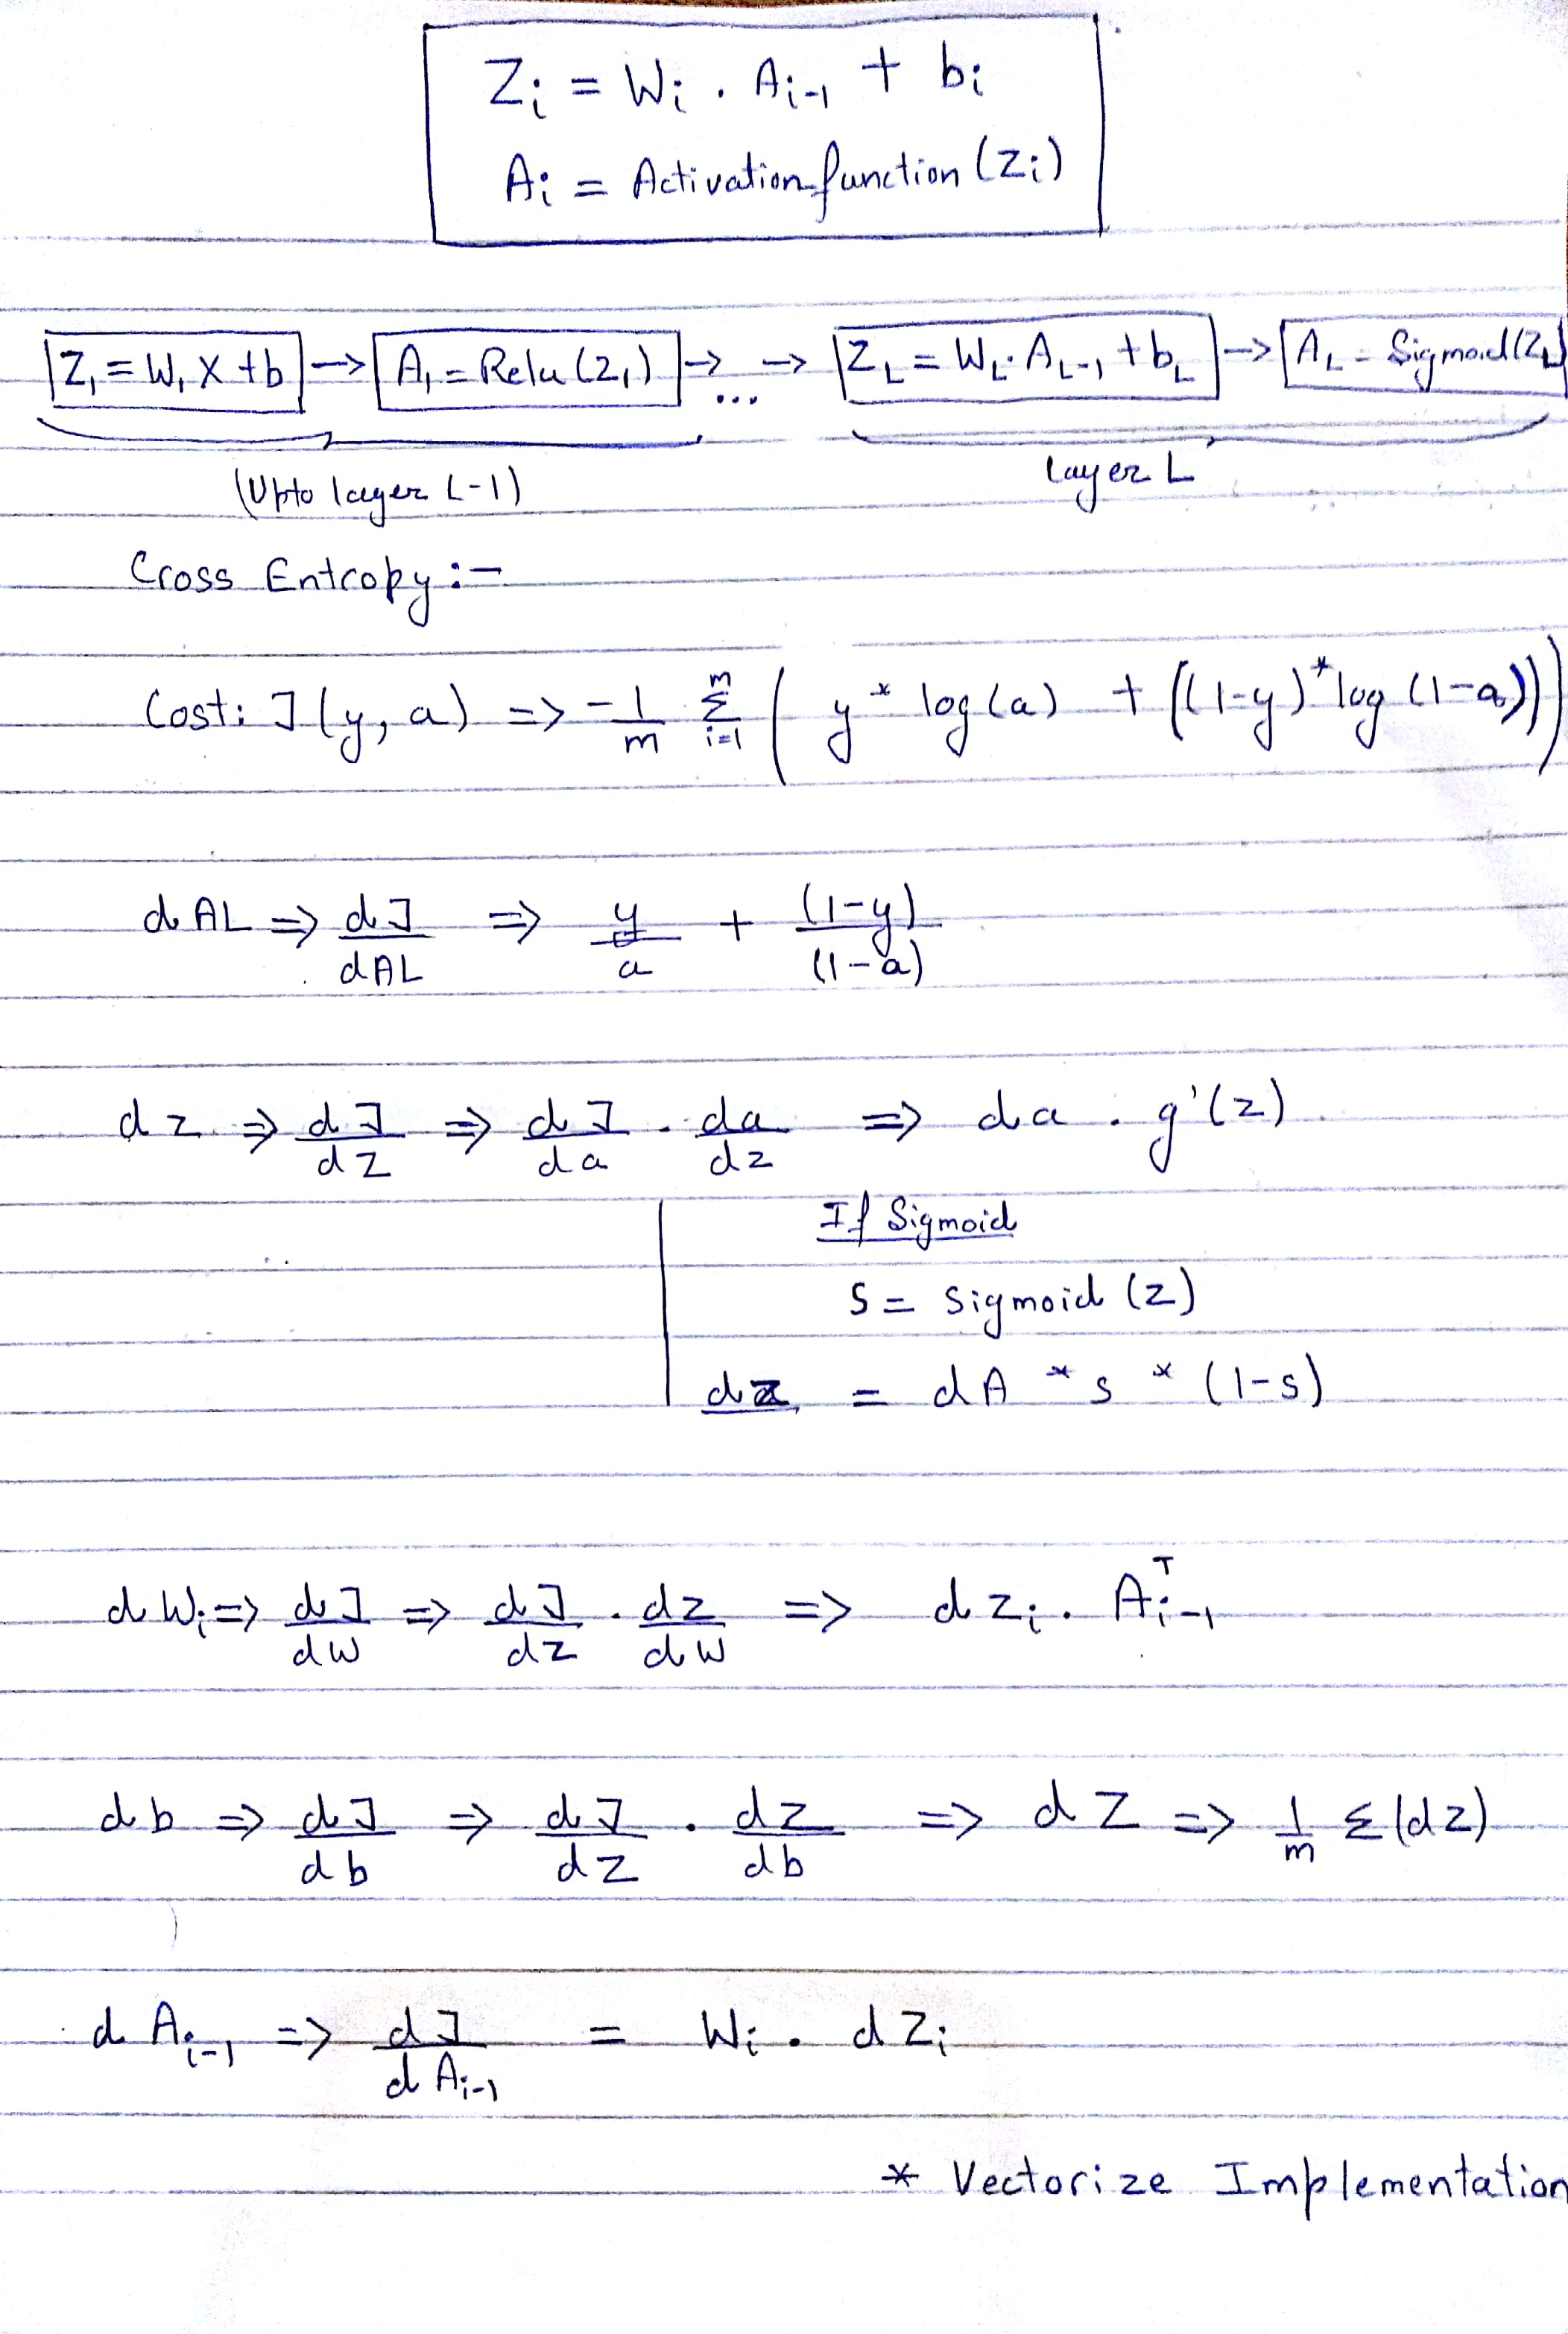 Zᵢ = Wᵢ . Aᵢ₋₁ + bᵢ
Aᵢ = Activation function (Zᵢ)
Z₁ = W₁ X + b → A₁ = Relu (Z₁) → ... → Z_L = W_L . A_L₋₁ + b_L → A_L = Sigmoid (Z_L)
(Upto layer L-1) Layer L
Cross Entropy :-
Cost: J (y, a) => - 1/m Σ_{i=1}^{m} ( y * log (a) + ((1-y) * log (1-a)))
dAL => dJ/dAL => y/a + (1-y)/(1-a)
dz => dJ/dz => dJ/da . da/dz => da . g'(z)
If Sigmoid
s = sigmoid (z)
dz = dA * s * (1-s)
dWᵢ => dJ/dW => dJ/dz . dz/dW => dzᵢ . Aᵢ₋₁ᵀ
db => dJ/db => dJ/dz . dz/db => dZ => 1/m Σ (dz)
dAᵢ₋₁ => dJ/dAᵢ₋₁ = Wᵢ . dZᵢ
* Vectorize Implementation